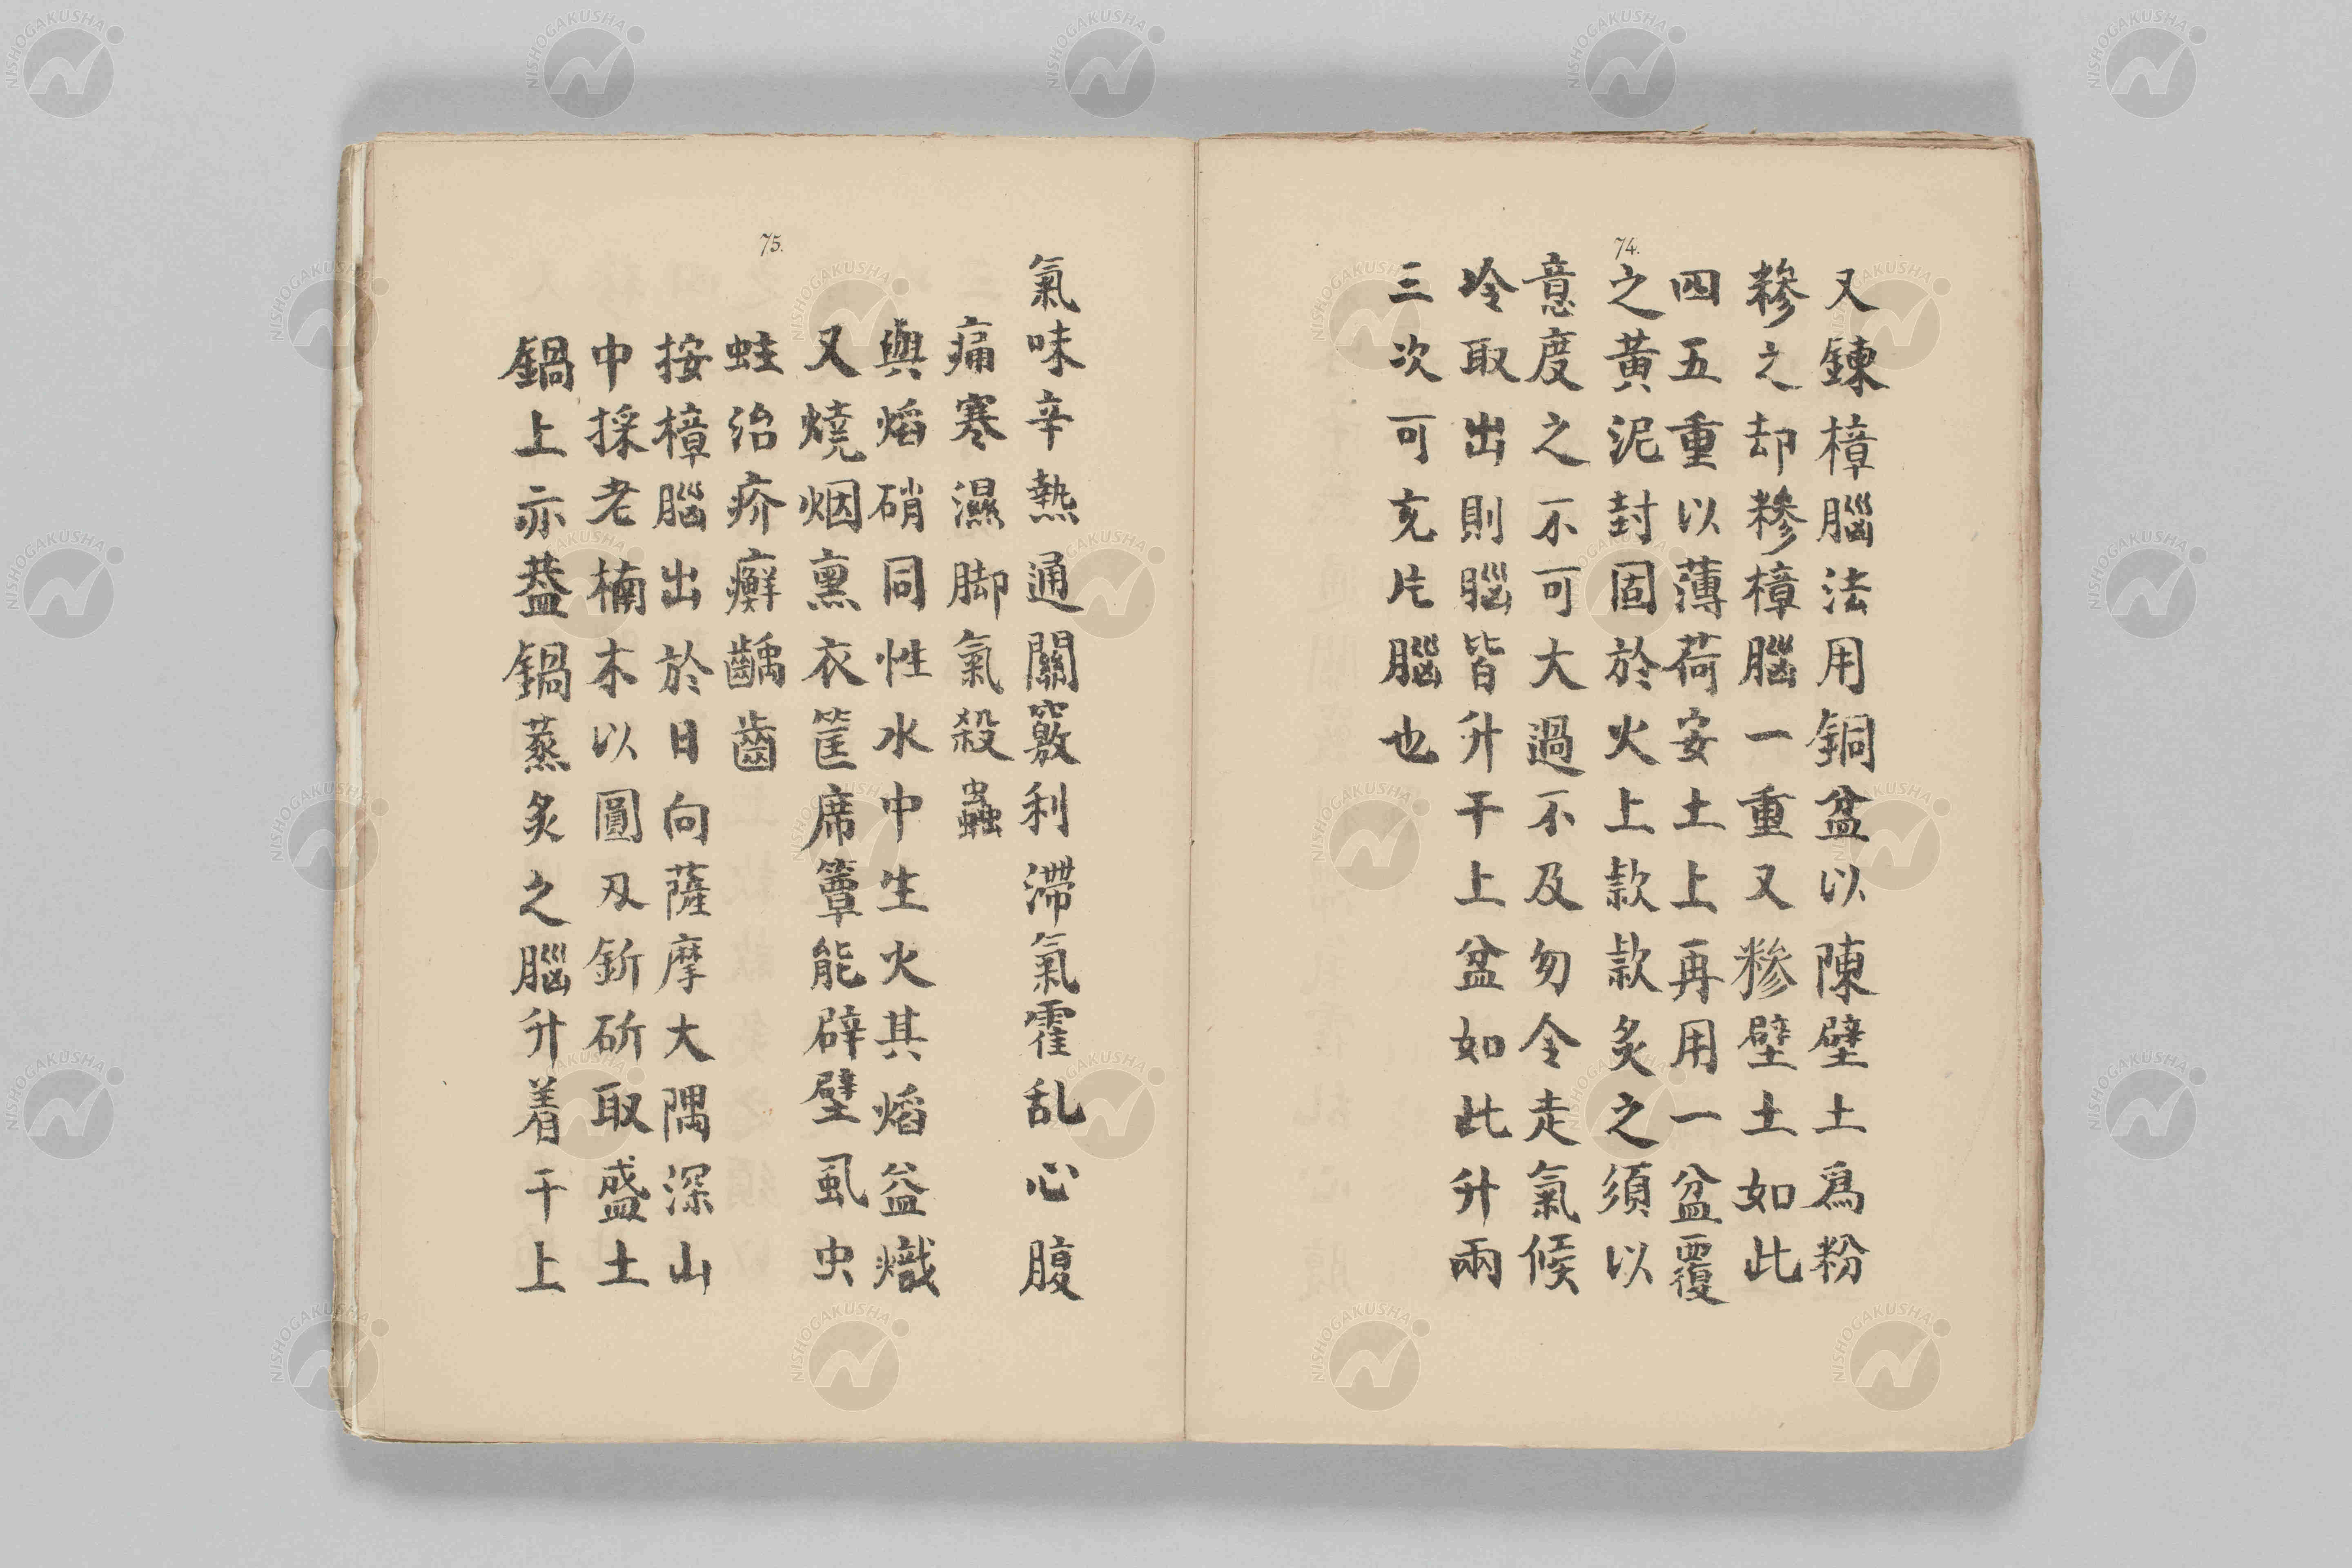 74.
又鍊樟腦法用銅盆以陳壁土爲粉
糝之却糝樟腦一重又糝壁土如此
四五重以薄荷安土上再用一盆覆
之黃泥封固於火上款款炙之須以
意度之不可大過不及勿令走氣候
冷取出則腦皆升干上盆如此升兩
三次可充片腦也
75.
氣味辛熱通關竅利滯氣霍乱心腹
痛寒濕脚氣殺蟲
與熖硝同性水中生火其熖益熾
又燒烟熏衣筐席簟能辟壁虱虫
蛀治疥癬齲齒
按樟腦出於日向薩摩大隅深山
中採老楠木以圓刄釿斫取盛土
鍋上亦葢鍋蒸炙之腦升着干上
NISHOGAKUSHA